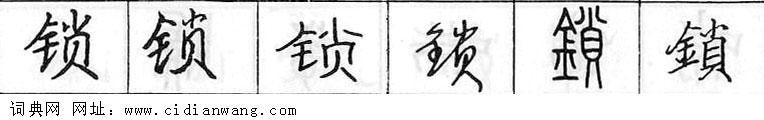 锁 锁 锁 锁 鎖 鎖
词典网 网址：www.cidianwang.com